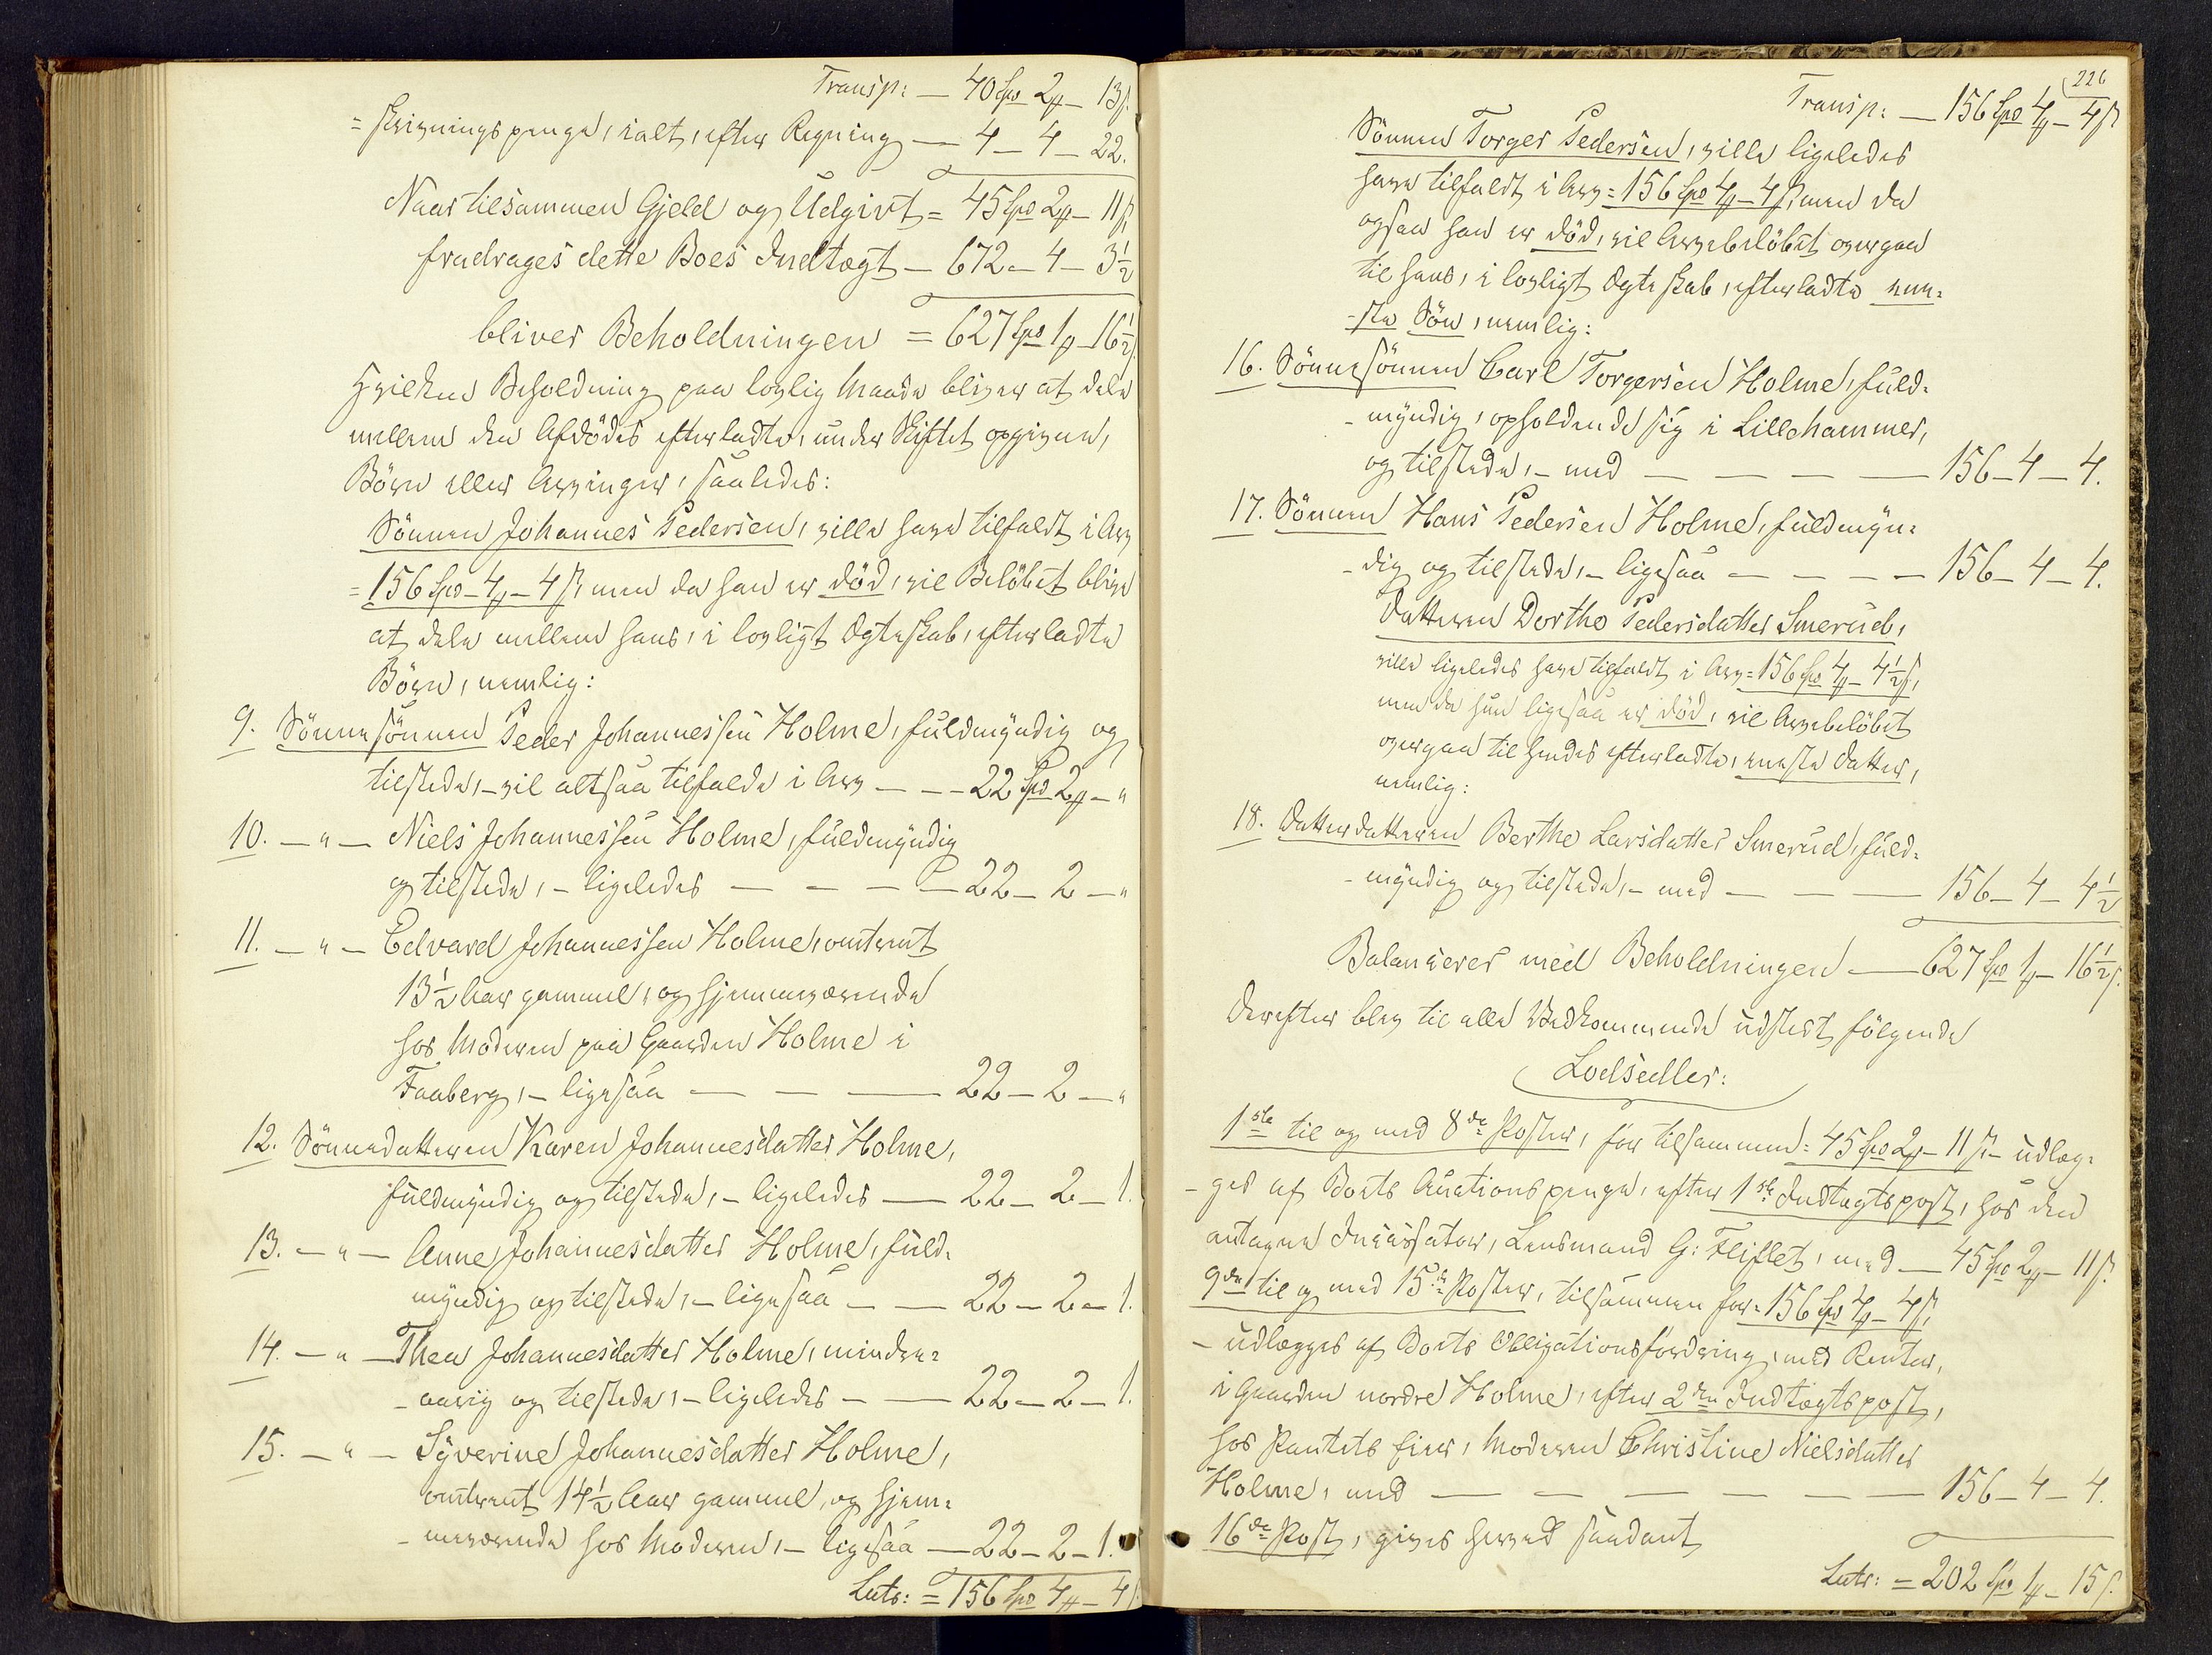 Transp: — 40 Spd 2 # — 13 ß.
= skrivningspenge, ialt, efter Regning — 4 — 4 — 22.
Naar tilsammen Gjeld og Udgivt = 45 Spd 2 # — 11 ß,
fradrages dette Boes Indtægt — 672 — 4 — 3 1/2
bliver Beholdningen = 627 Spd 1 # — 16 1/2 ß.
hvilken Beholdning paa lovlig Maade bliver at dele
mellem den Afdødes efterladte, under Skiftet opgivne,
Börn eller Arvinger, saaledes:
Sönnen Johannes Pedersen, vilde have tilfaldt i Arv
= 156 Spd — 4 # — 4 ß, men da han er död, vil Belöbet blive
at dele mellem hans, i lovligt Ægteskab, efterladte
Börn, nemlig:
9. Sönnesönnen Peder Johannessen Holme, fuldmyndig og
tilstede, — vil altsaa tilfalde i Arv — — 22 Spd 2 # — "
10. — " — Niels Johannessen Holme, fuldmyndig
og tilstede, — ligeledes — — — 22 — 2 — "
11. — " — Edvard Johannessen Holme, omtrent
13 1/2 Aar gammel, og hjemmeværende
hos Moderen paa Gaarden Holme i
Faaberg, — ligesaa — — — 22 — 2 — "
12. Sönnedatteren Karen Johannesdatter Holme,
fuldmyndig og tilstede, — ligeledes — 22 — 2 — 1.
13. — " — Anne Johannesdatter Holme, fuld-
myndig og tilstede, — ligesaa — — 22 — 2 — 1.
14. — " — Thea Johannesdatter Holme, mindre=
- aarig og tilstede, — ligeledes — — 22 — 2 — 1.
15. — " — Syverine Johannesdatter Holme,
omtrent 14 1/2 Aar gammel, og hjem=
- meværende hos Moderen, — ligesaa — 22 — 2 — 1.
Lats: = 156 Spd 4 # — 4 ß.
226
Transp: — 156 Spd 4 # — 4 ß
Sönnen Torger Pedersen, vilde ligeledes
have tilfaldt i Arv = 156 Spd 4 # — 4 ß, men da
ogsaa han er död, vil Arvebelöbet overgaa
til hans, i lovligt Ægteskab, efterladte ene=
- ste Sön, nemlig:
16. Sönnesönnen Carl Torgersen Holme, fuld=
- myndig, opholdende sig i Lillehammer,
og tilstede, — med — — — — 156 — 4 — 4.
17. Sönnen Hans Pedersen Holme, fuldmyn=
- dig og tilstede, — ligesaa — — — — 156 — 4 — 4.
Datteren Dorthe Pedersdatter Smerud,
vilde ligeledes have tilfaldt i Arv = 156 Spd 4 # — 4 1/2 ß,
men da hun ligesaa er död, vil Arvebelöbet
overgaa til hendes efterladte, eneste Datter,
nemlig:
18. Datterdatteren Berthe Larsdatter Smerud, fuld=
- myndig og tilstede, — med — — — 156 — 4 — 4 1/2
Balancerer med Beholdningen — 627 Spd 1 # — 16 1/2 ß.
Derefter blev til alle Vedkommende udstedt følgende
Lodsedler:
1ste til og med 8de Poster, for tilsammen = 45 Spd 2 # — 11 ß — udlæg=
- ges af Boets Auctionspenge, efter 1ste Indtægtspost, hos den
antagne Incassator, Lensmand G: Fliflet, med — 45 Spd 2 # — 11 ß.
9de til og med 15de Poster, tilsammen for = 156 Spd 4 # — 4 ß,
- udlægges af Boets Obligationsfordring, med Renter,
i Gaarden nordre Holme, efter 2den Indtægtspost,
hos Pantets Eier, Moderen Christine Nielsdatter
Holme, med — — — — — — 156 — 4 — 4.
16de Post, gives herved saadant
Lats: = 202 Spd 1 # — 15 ß.